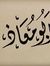 أبو معاذ